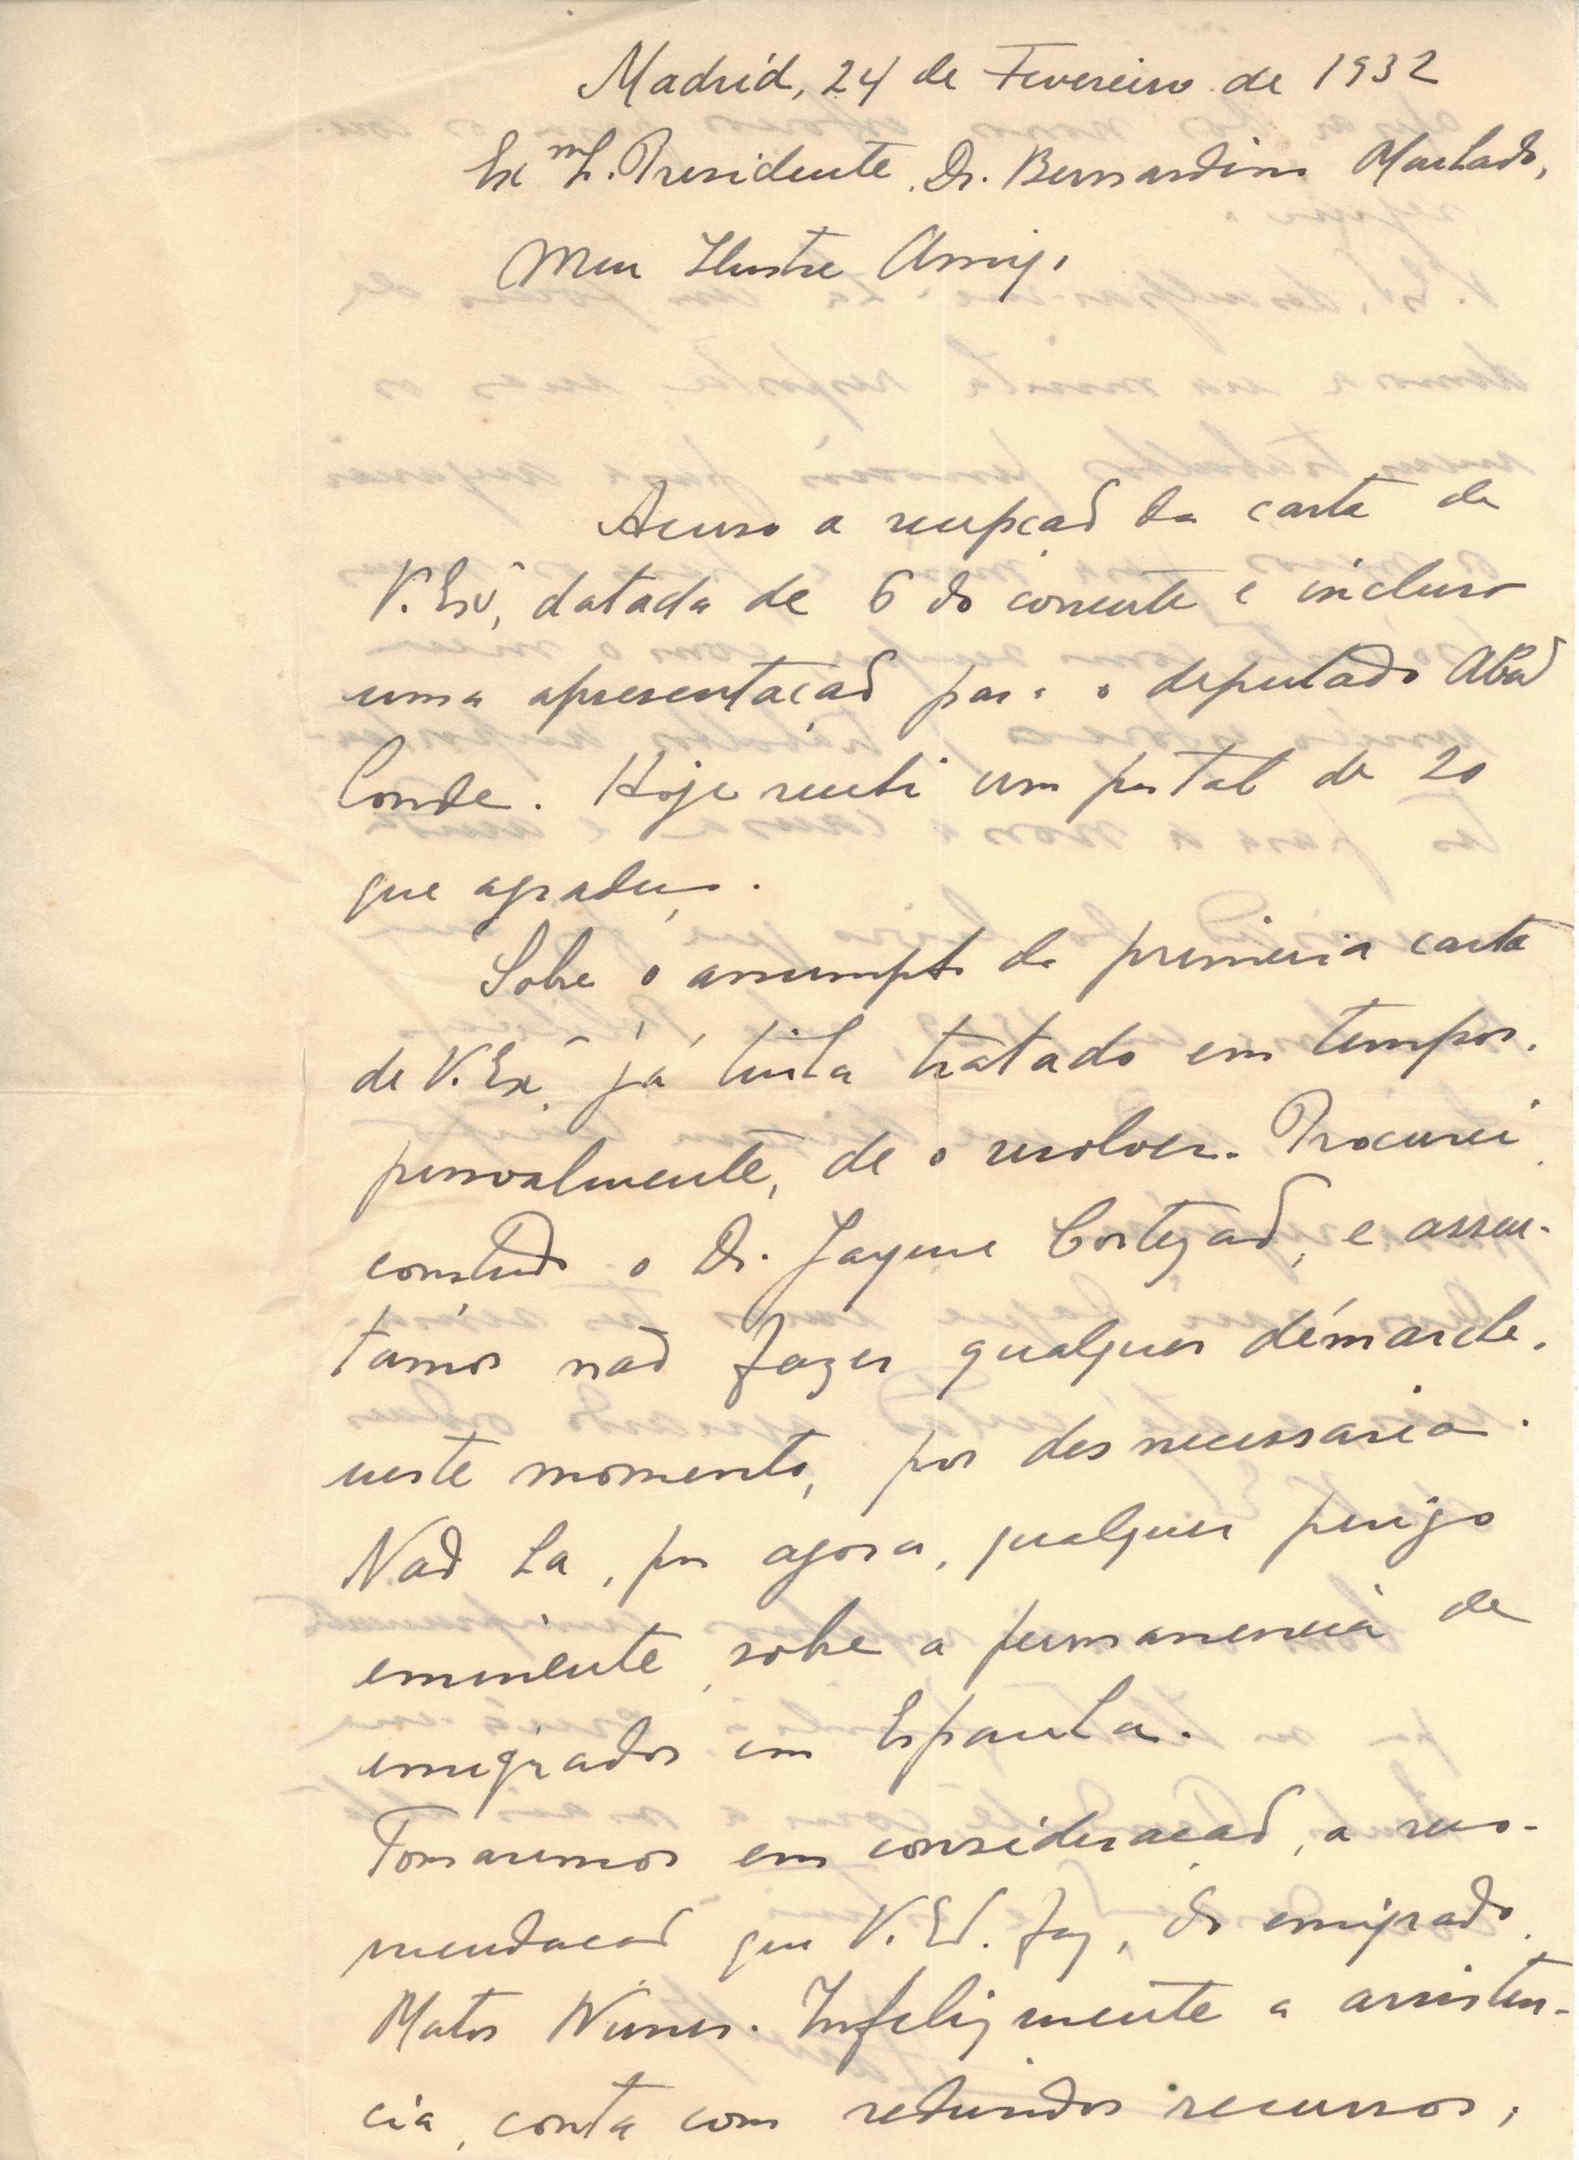 Madrid, 24 de Fevereiro de 1932
Ex.mo Sr. Presidente Dr. Bernardino Machado,
Meu Ilustre Amigo
Acuso a recepção da carta de
V. Exa, datada de 6 do corrente e incluso
uma apresentação para o deputado Abad
Conde. Hoje recebi um postal de 20
que agradeço.
Sobre o assumpto da primeira carta
de V. Exa já tinha tratado em tempos,
pessoalmente, de o resolver. Procurei
comtudo o Dr. Jayme Cortezão, e assen-
támos não fazer qualquer démarche,
neste momento, por desnecessaria.
Não ha, por agora, qualquer perigo
eminente, sobre a permanencia de
emigrados em Espanha.
Tomaremos em consideração, a reco-
mendação que V. Exa. faz, do emigrado
Matos Nunes. Infelizmente a assisten-
cia, conta com reduzidos recursos,